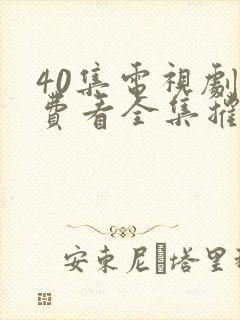 40集電視劇
費看全集推
安東尼·塔里